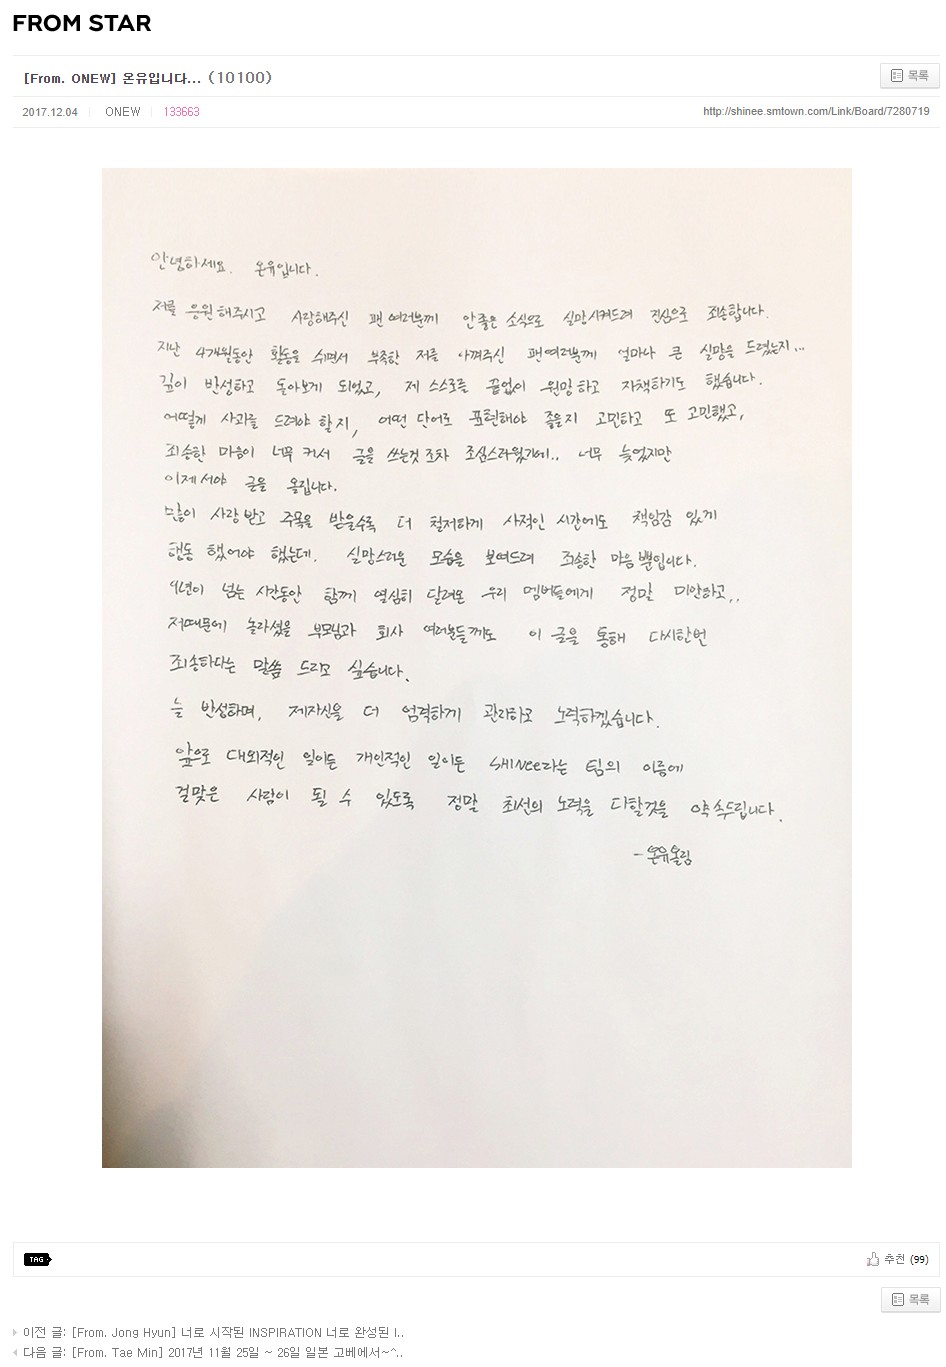 FROM STAR
[From. ONEW] 온유입니다... (10100)
목록
2017.12.04 ONEW 133663 http://shinee.smtown.com/Link/Board/7280719
안녕하세요. 온유입니다.
저를 응원해주시고 사랑해주신 팬 여러분께 안좋은 소식으로 실망시켜드려 진심으로 죄송합니다.
지난 4개월동안 활동을 쉬면서 부족한 저를 아껴주신 팬여러분께 얼마나 큰 실망을 드렸는지...
깊이 반성하고 돌아보게 되었고, 제 스스로를 끝없이 원망하고 자책하기도 했습니다.
어떻게 사과를 드려야 할지, 어떤 단어로 표현해야 좋을지 고민하고 또 고민했고,
죄송한 마음이 너무 커서 글을 쓰는것 조차 조심스러웠기에.. 너무 늦었지만
이제서야 글을 올립니다.
많이 사랑받고 주목을 받을수록 더 철저하게 사적인 시간에도 책임감 있게
행동 했어야 했는데. 실망스러운 모습을 보여드려 죄송한 마음뿐입니다.
9년이 넘는 시간동안 함께 열심히 달려온 우리 멤버들에게 정말 미안하고..
저때문에 놀라셨을 부모님과 회사 여러분들께도 이 글을 통해 다시한번
죄송하다는 말씀 드리고 싶습니다.
늘 반성하며, 제자신을 더 엄격하게 관리하고 노력하겠습니다.
앞으로 대외적인 일이든 개인적인 일이든 SHINee라는 팀의 이름에
걸맞은 사람이 될 수 있도록 정말 최선의 노력을 다할것을 약속드립니다.
-온유올림
TAG
추천 (99)
목록
이전 글: [From. Jong Hyun] 너로 시작된 INSPIRATION 너로 완성된 I..
다음 글: [From. Tae Min] 2017년 11월 25일 ~ 26일 일본 고베에서~^..